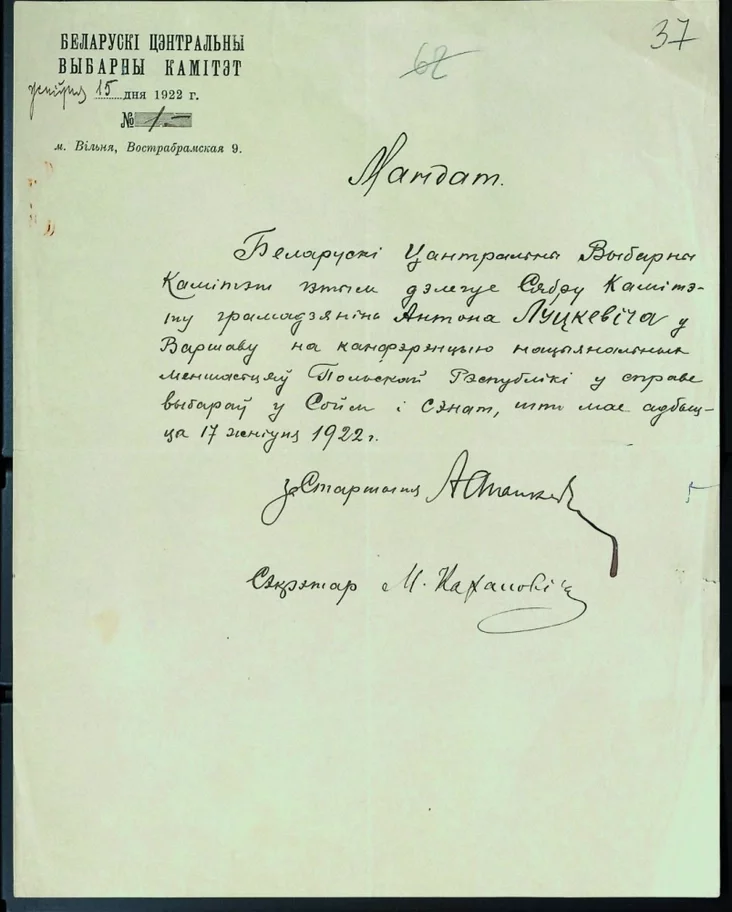 37
62
БЕЛАРУСКІ ЦЭНТРАЛЬНЫ
ВЫБАРНЫ КАМІТЭТ
жніўня 15 дня 1922 г.
№ 1.—
м. Вільня, Вострабрамская 9.
Мандат.
Беларускі Цэнтральны Выбарны
Камітэт гэтым дэлегуе Сябру Камітэ-
ту грамадзяніна Антона Луцкевіча у
Варшаву на канфэрэнцыю нацыянальных
меншасцяў Польскай Рэспублікі у справе
выбараў у Сойм і Сэнат, што мае адбыц-
ца 17 жніўня 1922 г.
за Старшыня А Станкевіч
Сэкрэтар М. Кахановіч